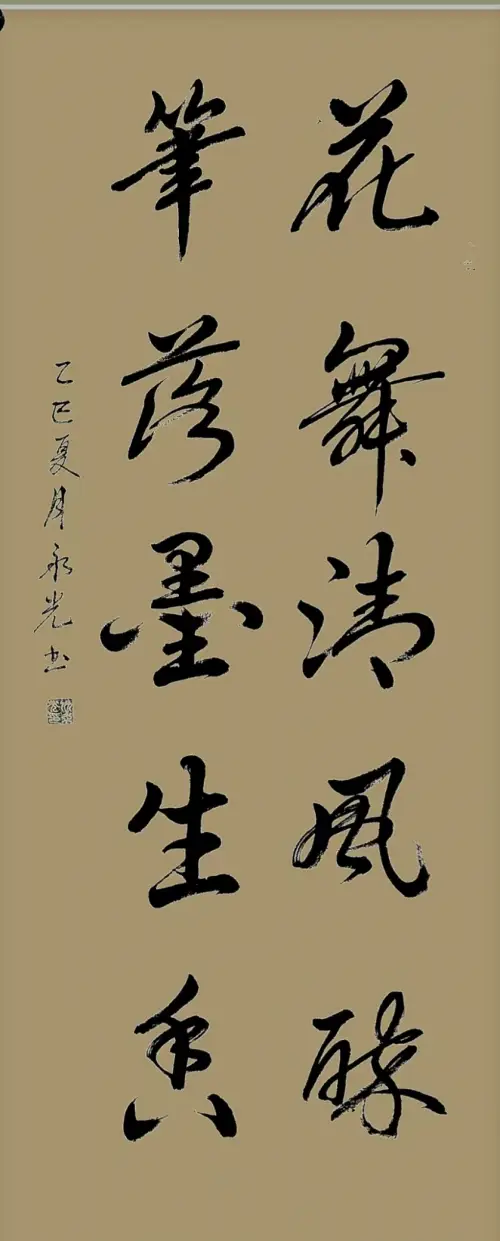 花舞清风醉
筆落墨生香
乙巳夏月永光书